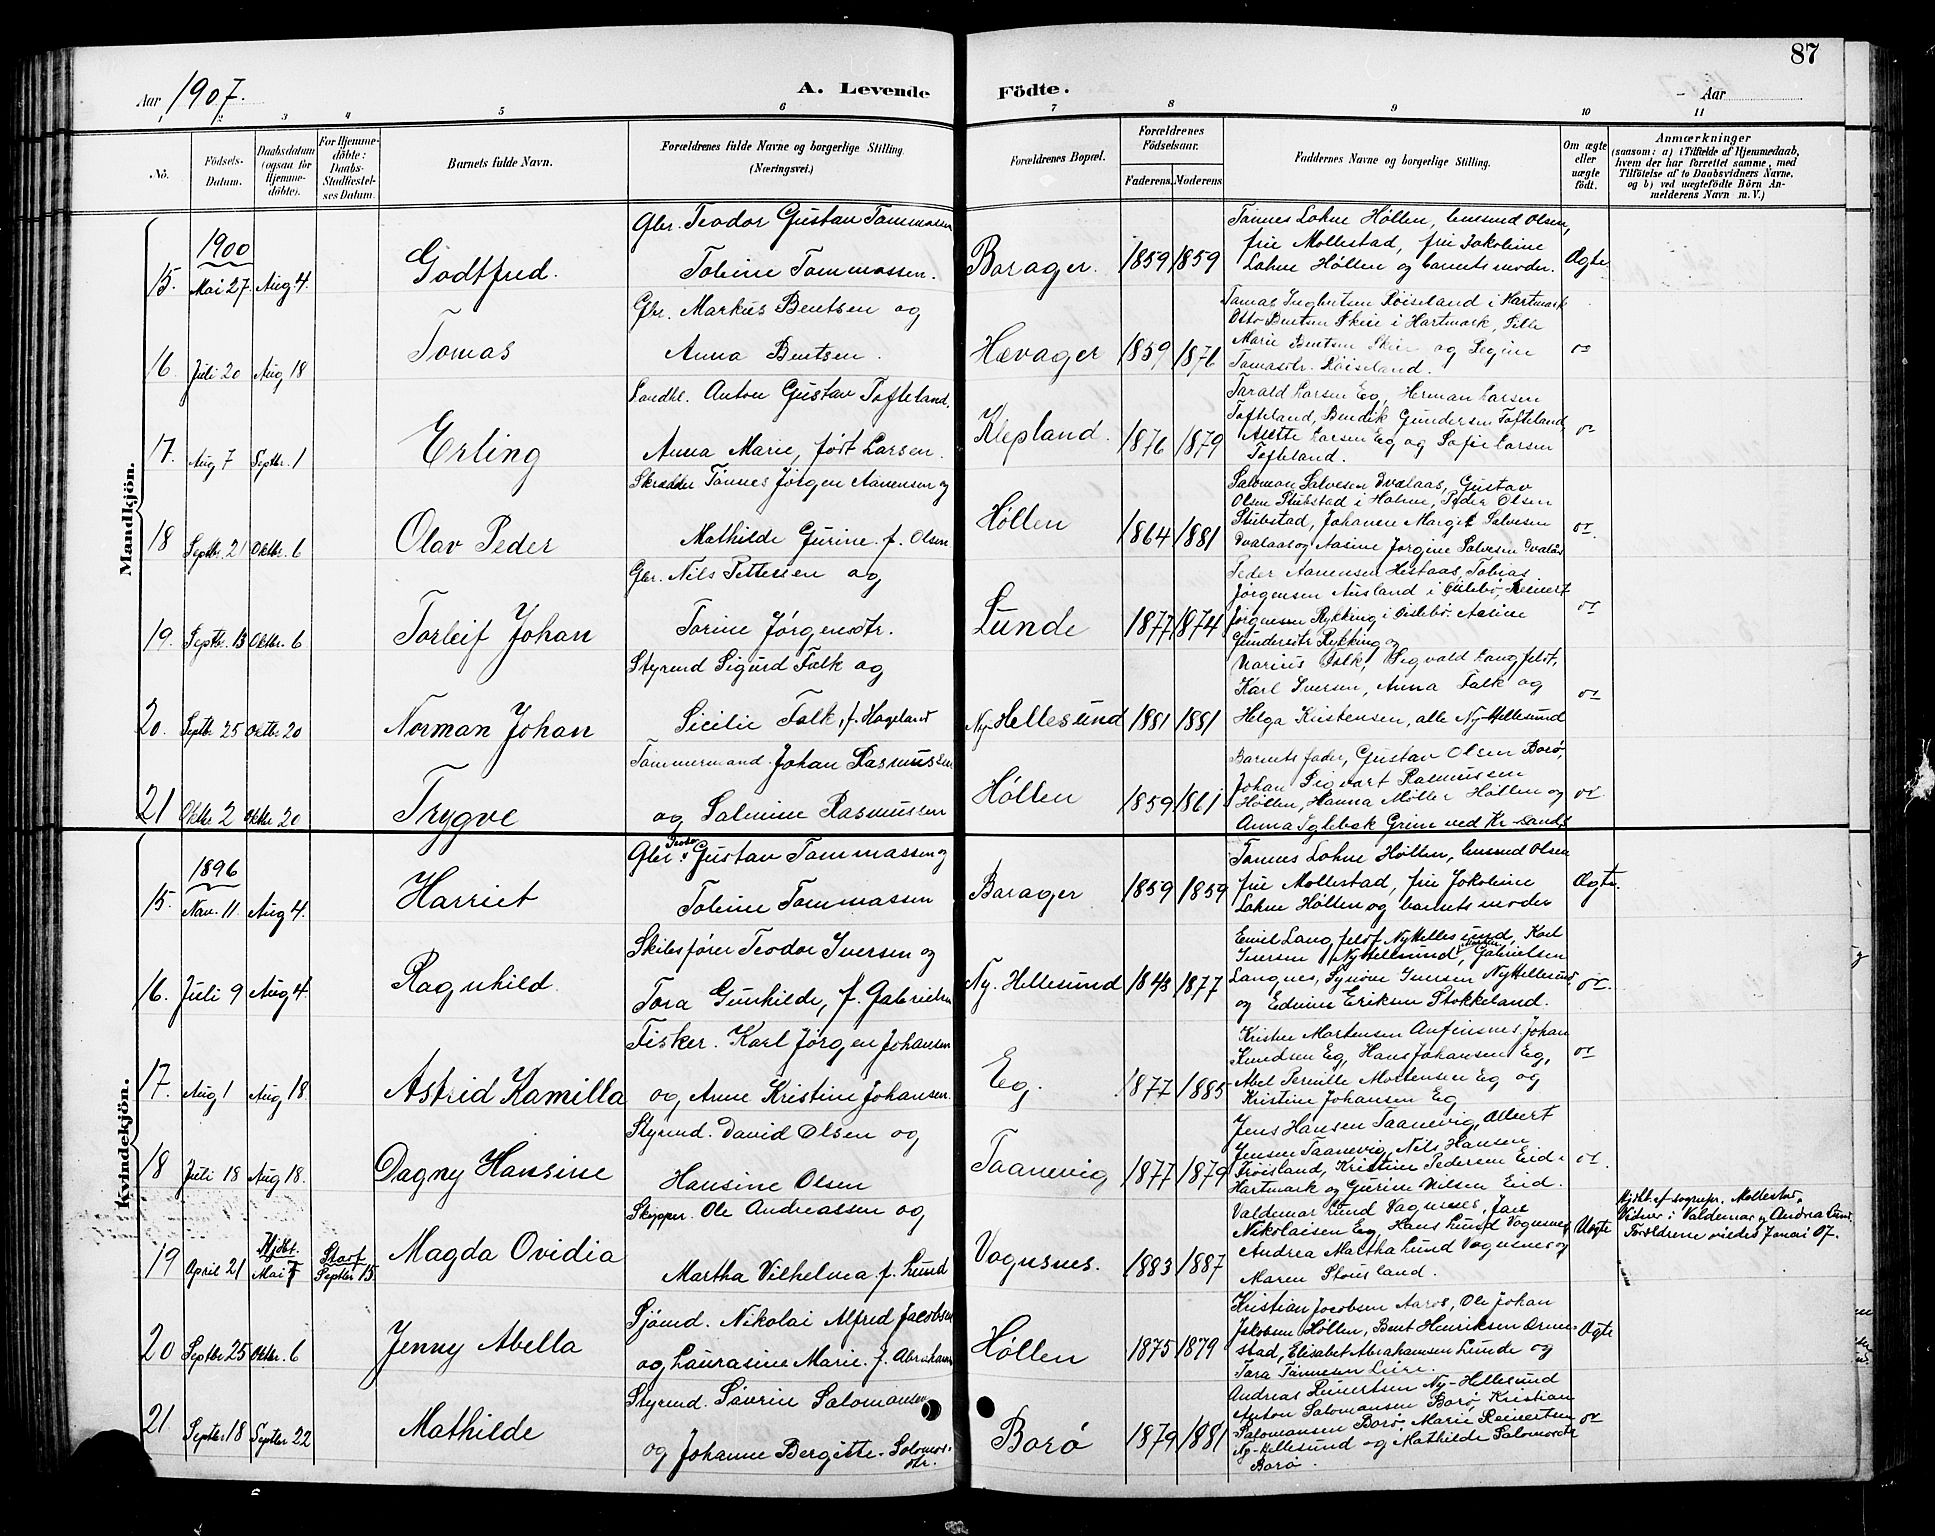 87
Aar 1907.
A. Levende Födte.
Aar
1 2 3 4 5 6 7 8 9 10 11
No. Födsels-Datum. Daabsdatum (ogsaa for Hjemme-döbte). For Hjemme-döbte: Daabs-Stadfæstel-ses Datum. Barnets fulde Navn. Forældrenes fulde Navne og borgerlige Stilling. (Næringsvei.) Forældrenes Bopæl. Forældrenes Födselsaar. Faderens. Moderens. Faddernes Navne og borgerlige Stilling. Om ægte eller uægte födt. Anmærkninger
(saasom: a) i Tilfælde af Hjemmedaab,
hvem der har forrettet samme, med
Tilföielse af to Daabsvidners Navne,
og b) ved uægtefödte Börn An-
melderens Navn m. V.)
Mandkjön.
Gbr. Teodor Gustav Tommassen
Tönnes Lohne Höllen, Omund Olsen,
1900
frue Mollestad, frue Jakobine
15. Mai 27. Aug 4. Godtfred. Tobine Tommassen. Borager. 1859 1859 Lohne Höllen og barnets moder. Ægte
Gbr. Markus Bentsen og
Tomas Ingbertsen Röiseland i Hartmark
Otto Bentsen Skeie i Hartmark,
16. Juli 20 Aug 18 Tomas Anna Bentsen. Hævager 1859 1876 Marie Bentsen Skeie og
Tomasdtr. Röiseland.
Anton Gustav Tofteland,
Tarald Larsen Eg, Herman Larsen
Tofteland, Bendik Gundersen Tofteland,
17. Aug 7 Septbr. 1 Erling Anna Marie, född Larsen. Klepland. 1876 1879 Larsen Eg og Sofie Larsen
Tofteland.
Skrædder Tönnes Jörgen Aanensen og
Salomon Salvesen Dvalaas, Gustav
Olsen Stubstad i Holme, Peder Olsen
18 Septbr. 21 Oktbr. 6 Olav Peder Mathilde Gurine f. Olsen Höllen 1864 1881 Stubstad, Johanne Margit Salvesen
Dvalaas og Aasine Jorgine Salvesen Dvalaas
Gbr. Nils Pettersen og
Peder Aanensen Hestaas, Tobias
Jörgensen Ausland i Öislebö, Reinert
19. Septbr. 13 Oktbr. 6 Torleif Johan Torine Jörgensdtr. Lunde 1877 1874 Jörgensen Rykking i Öislebö Aasine
Gundersdtr Rykking og
Styrmd Sigurd Falk og
Marius Falk, Sigvald Langfeldt,
Karl Iversen, Anna Falk og
20. Septbr 25 Oktbr 20 Norman Johan Sicilie Falk, f. Hageland Ny-Hellesund 1881 1881 Helga Kristensen, alle Ny-Hellesund
Tömmermand. Johan Rasmussen
Barnets fader, Gustav Olsen Borö,
Johan Sigvart Rasmussen
21 Oktbr 2 Oktbr 20 Trygve og Salmine Rasmussen Höllen 1859 1861 Höllen, Hanna Möller Höllen og
Anna Iglebæk Grim ved Kr-sand
Kvindekjön.
Gbr. Teodor Gustav Tommassen og
Tönnes Lohne Höllen, Omund Olsen
1896
15. Nov. 11 Aug 4. Harriet Tobine Tommassen Borager 1859 1859 frue Mollestad, frue Jakobine Ægte
Lohne Höllen og barnets moder
Skibsförer Teodor Iversen og
Emil Langfeldt Ny Hellesund, Karl
Iversen Ny Hellesund, Gabrielsen
16. Juli 9 Aug 4. Ragnhild Tora Gunhilde, f. Gabrielsen Ny. Hellesund 1843 1877 Langnes, Synöve Iversen Ny Hellesund
og Edvine Eriksen Stokkeland.
Fisker. Karl Jörgen Johansen
Kristen Mortensen Aufinsnes, Johan
Knudsen Eg, Hans Johansen Eg,
17. Aug 1 Aug 18 Astrid Kamilla og Anne Kristine Johansen. Eg. 1877 1885 Abel Pernille Mortensen Eg og
Kristine Johansen Eg
Styrmd. David Olsen og
Jens Hansen Taanevig, Albert
Jensen Taanevig, Nils Hansen
18 Juli 18 Aug 18. Dagny Hansine Hansine Olsen Taanevig 1877 1879 Tröisland, Kristine Pedersen Eid i
Hartmark og Gurine Nilsen Eid.
Skipper. Ole Andreassen og
Valdemar Lund Vagnsnes,
Nikolaisen Eg, Hans Lund Vagsnes,
19 April 21 Hjdbt. Mai 7 Stadf Septbr 15 Magda Ovidia Martha Vilhelmea f. Lund Vognsnes. 1883 1887 Andrea Martha Lund Vognsnes og Uægte
Maren Stousland.
Hjdbt. af sognepr. Mollestad.
Vidner: Valdemar og Andrea Lund.
Forældrene viedes 07.
Sjömd. Nikolai Alfred Jacobsen
Kristian Jacobsen Aaros, Ole Johan
20 Septbr 25 Oktbr. 6 Jenny Abella og Laurasine Marie f. Abrahams Höllen 1875 1879 Jakobsen Höllen, Bent Henriksen Ægte
stad, Elisabet Abrahamsen Lunde og
Tora Tönnesen
Styrmd. Sövrin Salomonsen
Andreas Reinertsen Ny-Hellesund
Anton Salomonsen Borö, Kristian
21. Septbr 18 Septbr 22 Mathilde og Johanne Bergitte Salomons-dtr. Borö 1879 1881 Salomonsen Borö Marie Reinertsen
Ny-Hellesund og Mathilde Salomonsdtr
Borö.